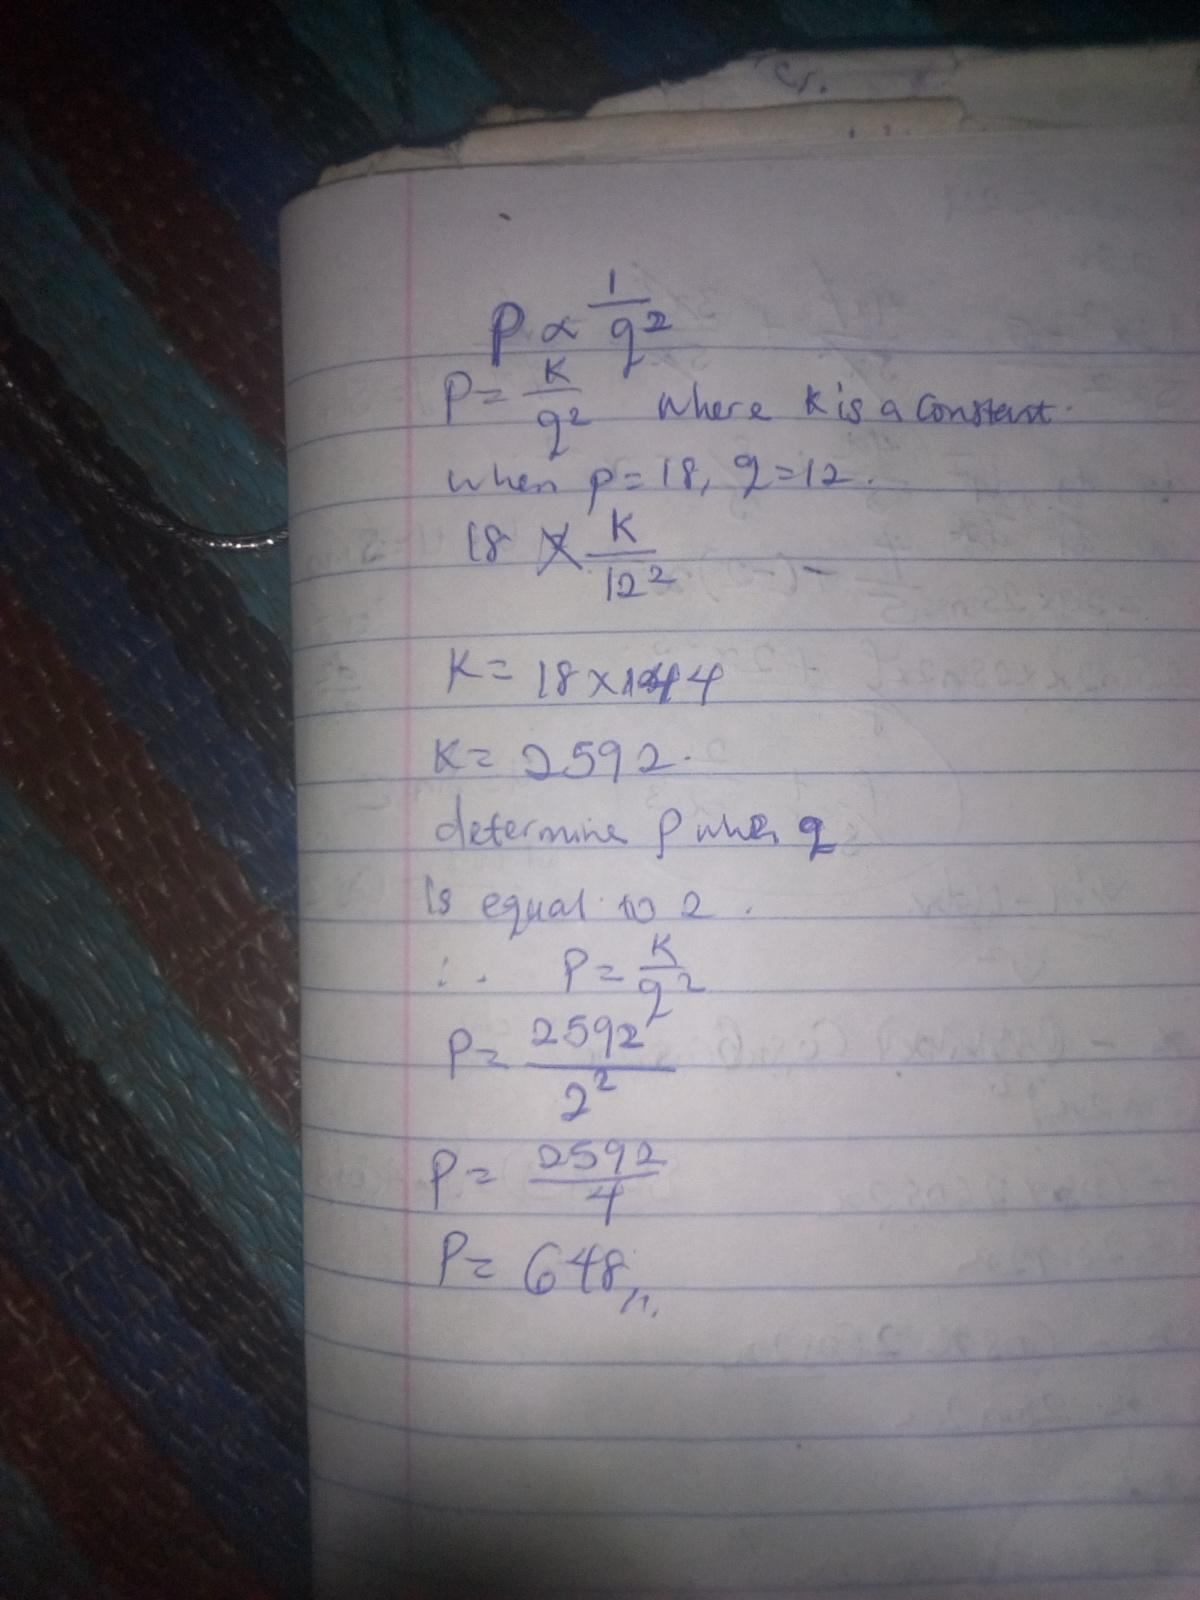 P ∝ 1/q²
P = K/q² where K is a constant.
when p = 18, q = 12.
18 K/12²
K = 18 × 144
K = 2592.
determine P when q
is equal to 2.
∴ P = K/q²
P = 2592/2²
P = 2592/4
P = 648